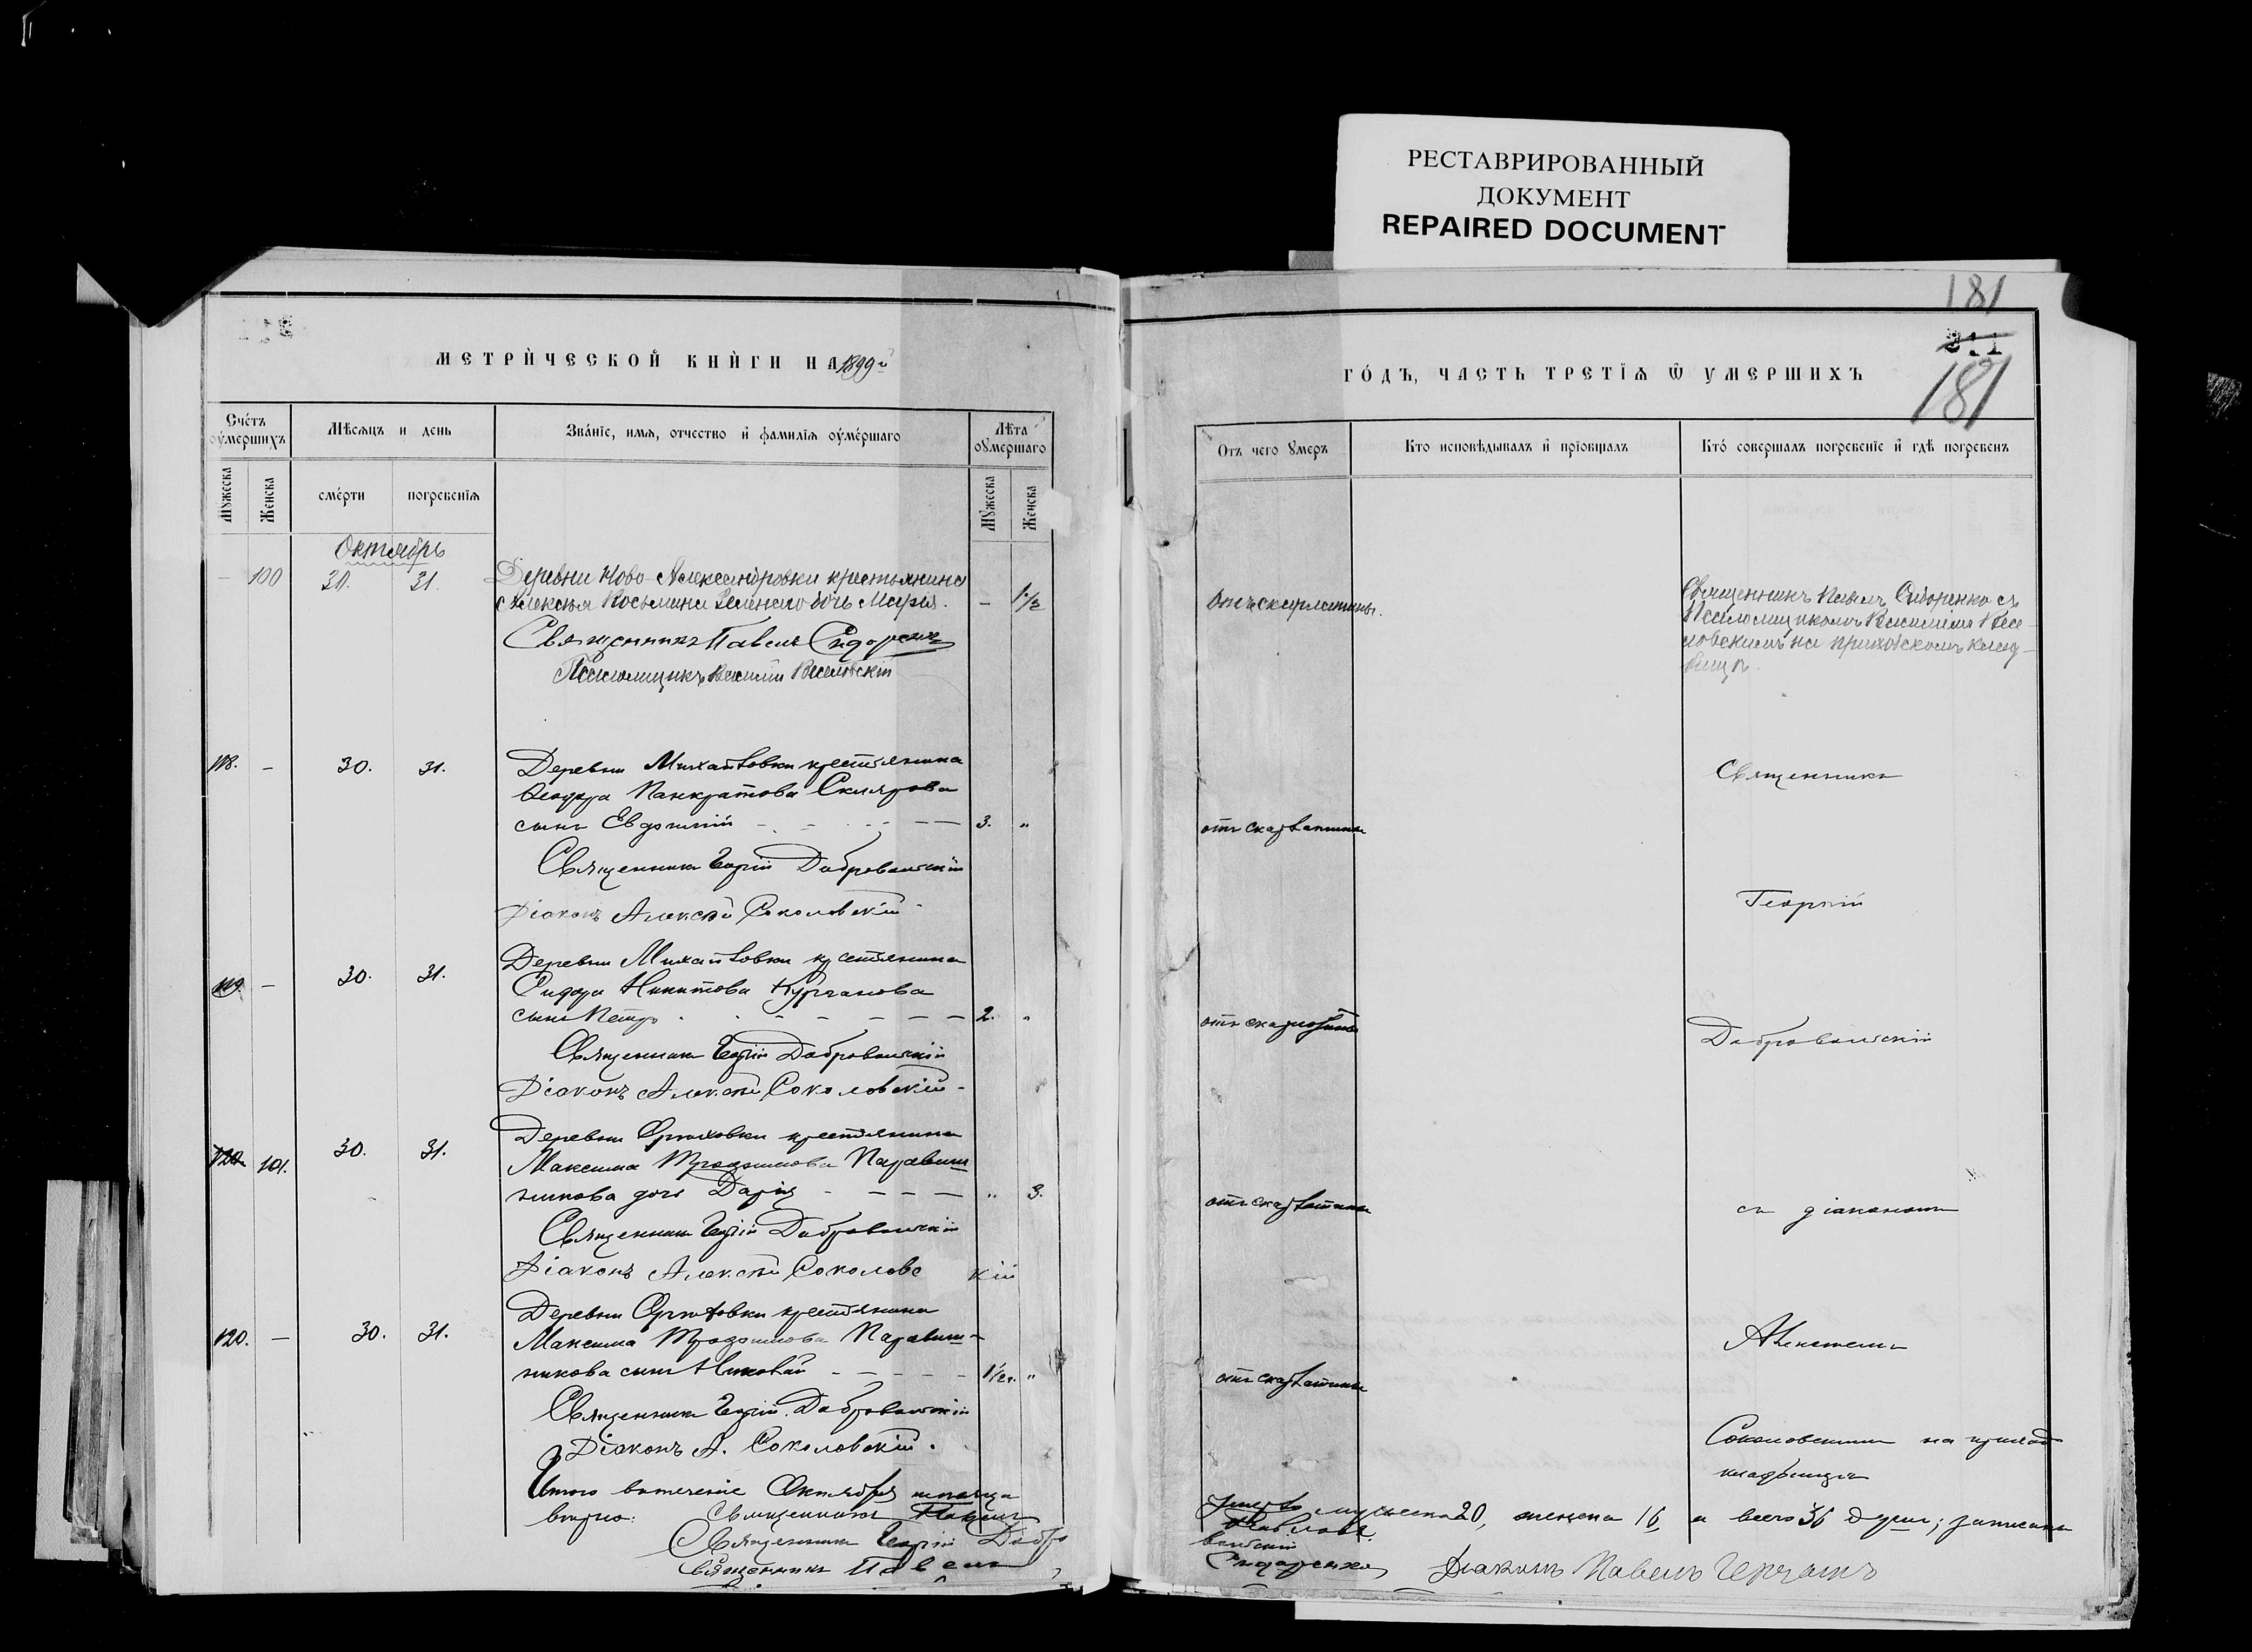 РЕСТАВРИРОВАННЫЙ
ДОКУМЕНТ
REPAIRED DOCUMENT
181
МЕТРИ́ЧЕСКОЙ КНИ́ГИ НА 1899й
ГО́ДЪ, ЧАСТЬ ТРЕТІѦ Ѿ УМЕРШИХЪ
181
Сче́тъ оу́мершихъ
Мѣсѧцъ и день
Зва́нїе, имѧ, отчество и́ фамилїѧ оу́ме́ршаго
Лѣта оумершаго
Мꙋжеска
Женска
сме́рти
погребенїѧ
Мꙋжеска
Женска
Отъ чего ꙋмеръ
Кто исповѣдывалъ и́ прїобщалъ
Кто́ совершалъ погребенїе и́ гдѣ погребенъ
Октябрь
— 100 30. 31. Деревни Ново-Александровки крестьянина
Алексѣя Косьмина дочь Марія. — 1 1/2
Священникъ Павелъ Сидоренко
Псаломщикъ Василій Веселовскій
Отъ скарлатины.
Священникъ Павелъ Сидоренко съ
Псаломщикомъ Василіемъ Весе-
ловскимъ на приходскомъ клад-
бищѣ.
118. — 30. 31. Деревни Михайловки крестьянина
Ѳеодора Панкратова Склярова
сынъ Евдокимій 3. "
Священникъ Георгій Добровольскій
Діаконъ Алексѣй Соколовскій
отъ скарлатины
Священникъ
Георгій
119. — 30. 31. Деревни Михайловки крестьянина
Сидора Никитова Курчанова
сынъ Петръ 2. "
Священникъ Георгій Добровольскій
Діаконъ Алексѣй Соколовскій
отъ скарлатины
Добровольскій
120. 101. 30. 31. Деревни Орловки крестьянина
Максима
никова дочь Дарія " 3.
Священникъ Георгій Добровольскій
Діаконъ Алексѣй Соколовскій
отъ скарлатины
съ діакономъ
120. — 30. 31. Деревни Орловки крестьянина
Максима
никова сынъ Николай 1 1/2 г. "
Священникъ Георгій Добровольскій
Діаконъ А. Соколовскій.
отъ скарлатины
Алексѣемъ
Соколовскимъ на приход
кладбищѣ
Итого втеченіе Октября мѣсяца
умерло мужеска 20, женска 16, а всего 36 душъ; записано
вѣрно: Священникъ Павелъ
Священникъ Георгій Добровольскій
Священникъ Павелъ Сидоренко
Діаконъ Павелъ